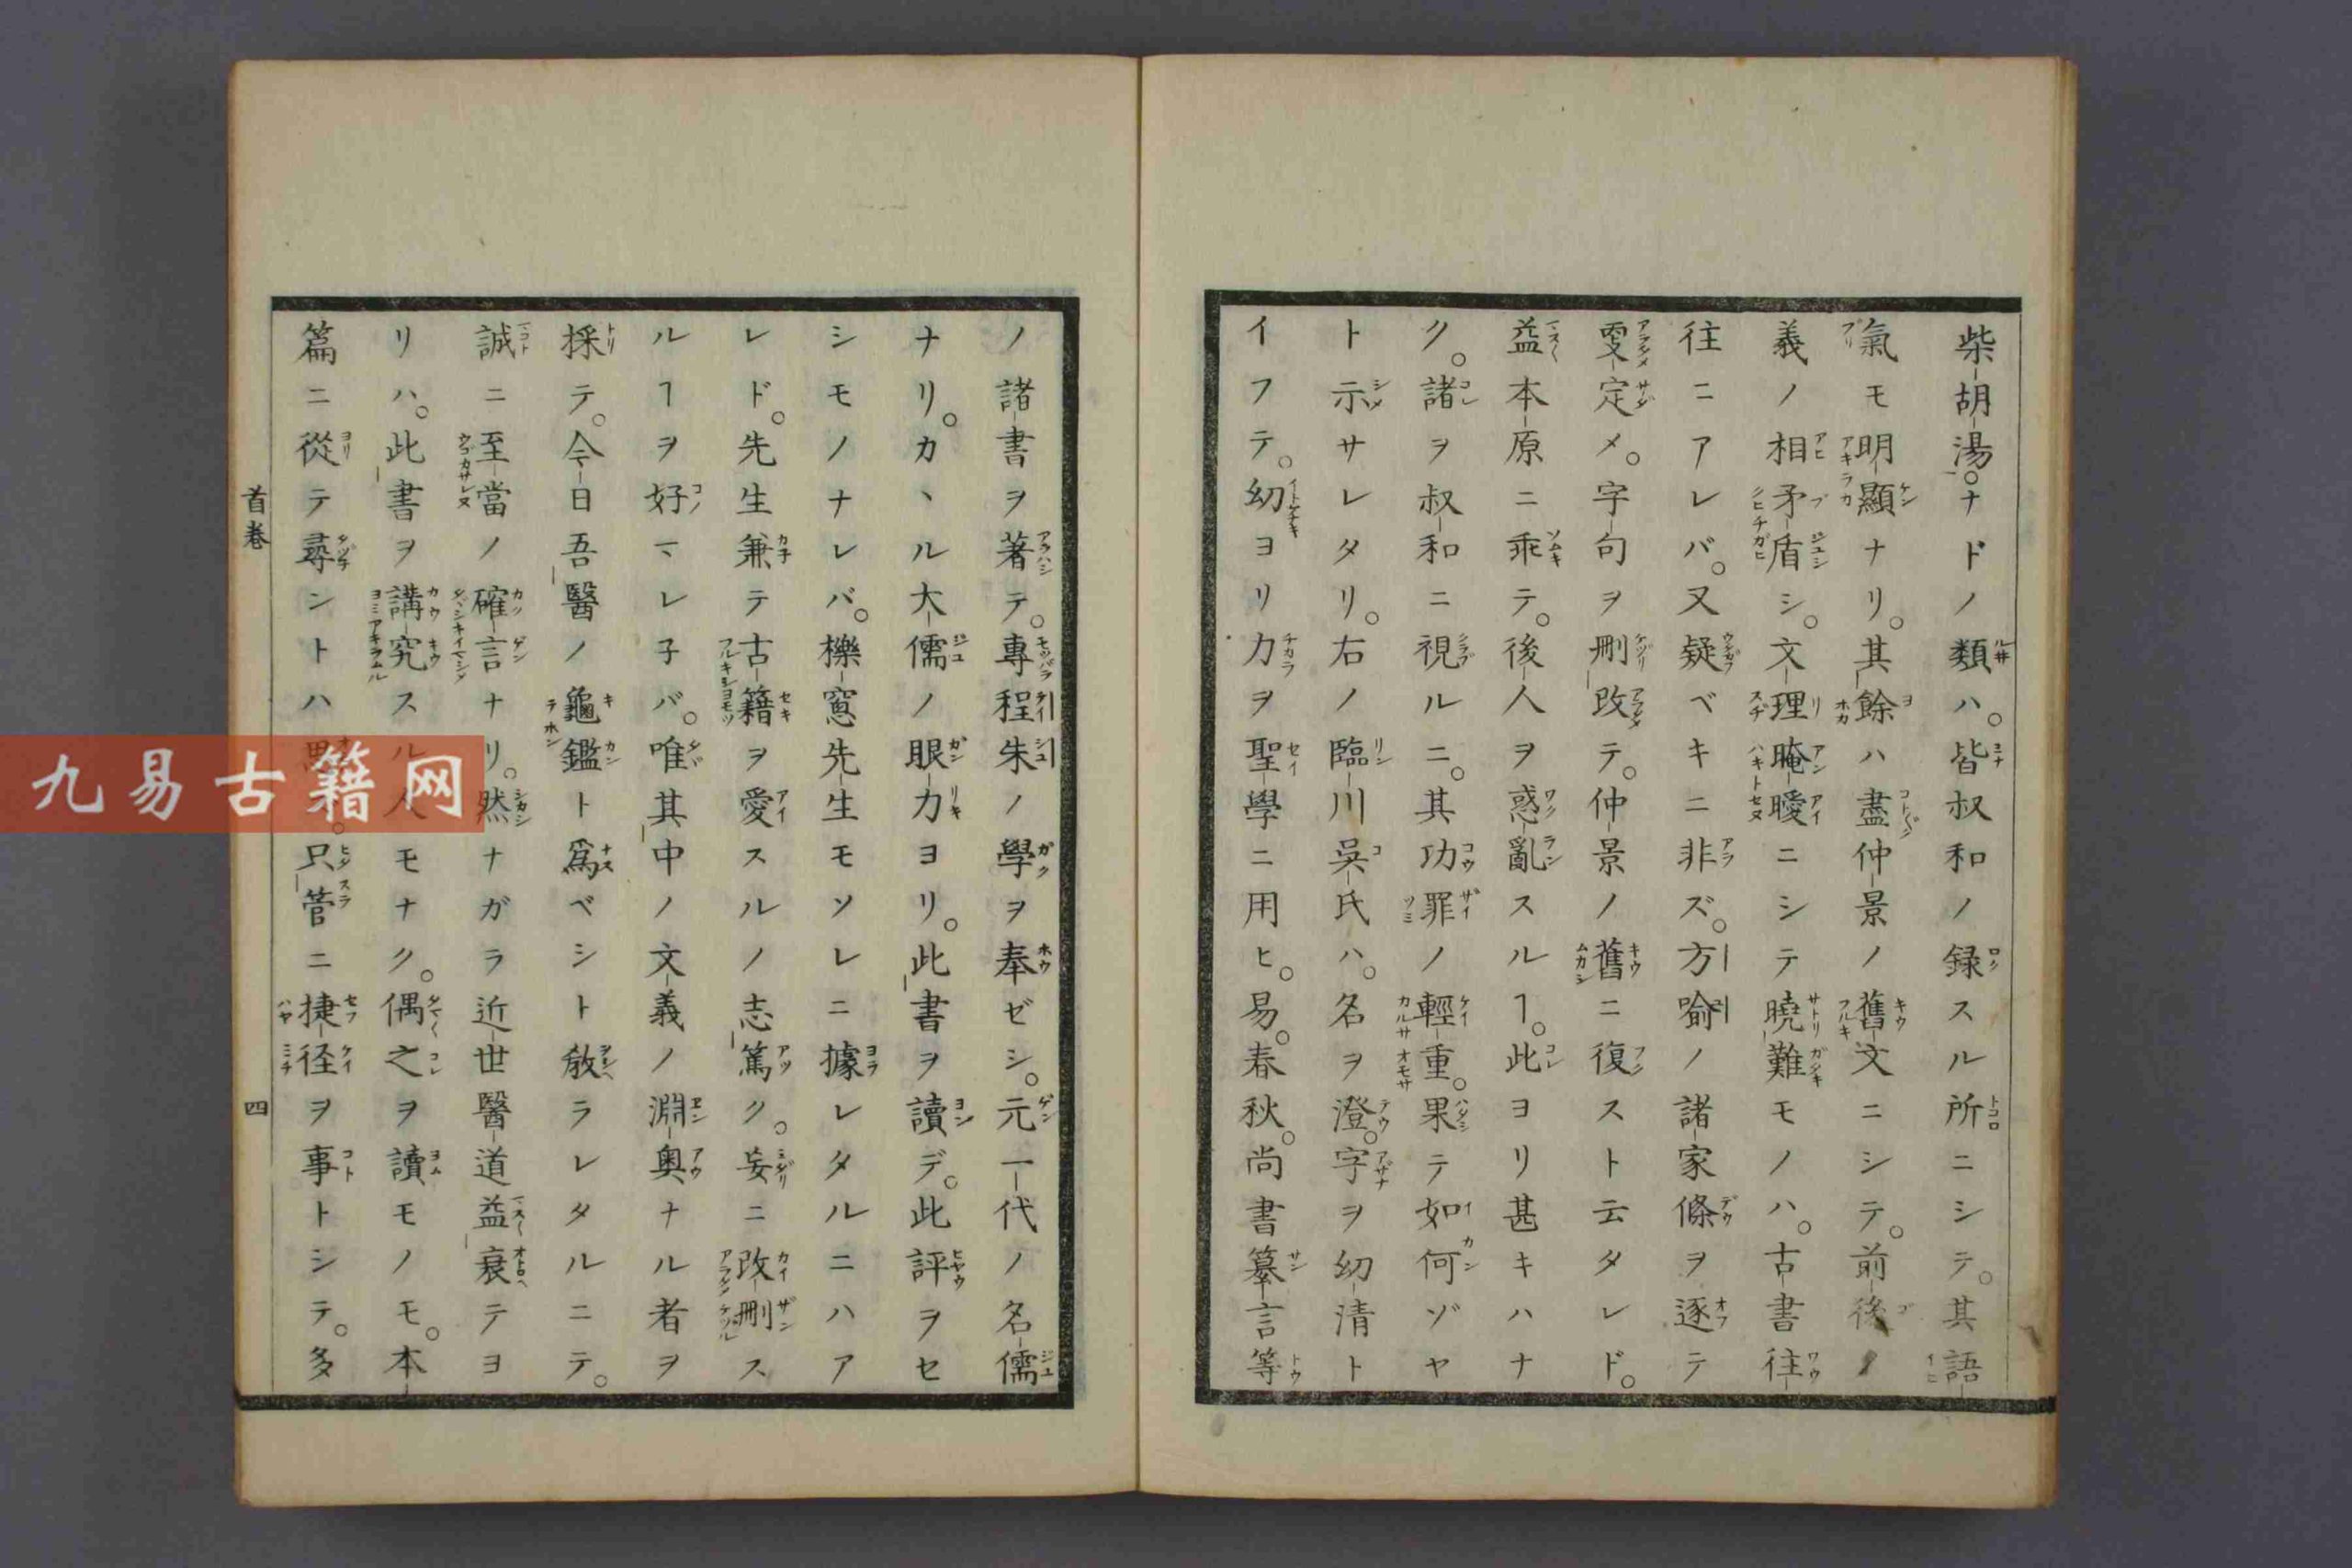 柴胡湯。ナドノ類ハ。皆叔和ノ録スル所ニシテ。其語
氣モ明顯ナリ。其餘ハ盡仲景ノ舊文ニシテ。前後ノ
義ノ相矛盾シ。文理晻曖ニシテ曉難モノハ。古書往
往ニアレバ。又疑ベキニ非ズ。方喩ノ諸家條ヲ逐テ
更定メ。字句ヲ刪改テ。仲景ノ舊ニ復スト云タレド。
益本原ニ乖テ。後人ヲ惑亂スルヿ。此ヨリ甚キハナ
ク。諸ヲ叔和ニ視ルニ。其功罪ノ輕重。果テ如何ゾヤ
ト示サレタリ。右ノ臨川吳氏ハ。名ヲ澄。字ヲ幼清ト
イフテ。幼ヨリ力ヲ聖學ニ用ヒ。易。春秋。尚書纂言等
ノ諸書ヲ著テ。專程朱ノ學ヲ奉ゼシ。元一代ノ名儒
ナリ。カヽル大儒ノ眼力ヨリ。此書ヲ讀デ。此評ヲセ
シモノナレバ。櫟窻先生モソレニ據レタルニハア
レド。先生兼テ古籍ヲ愛スルノ志篤ク。妄ニ改刪ス
ルヿヲ好マレ子バ。唯其中ノ文義ノ淵奥ナル者ヲ
採テ。今日吾醫ノ龜鑑ト爲ベシト敎ラレタルニテ。
誠ニ至當ノ確言ナリ。然ナガラ近世醫道益衰テヨ
リハ。此書ヲ講究スル人モナク。偶之ヲ讀モノモ。本
篇ニ從テ尋シトハ。只管ニ捷径ヲ事トシテ。多
首卷
四
九易古籍网